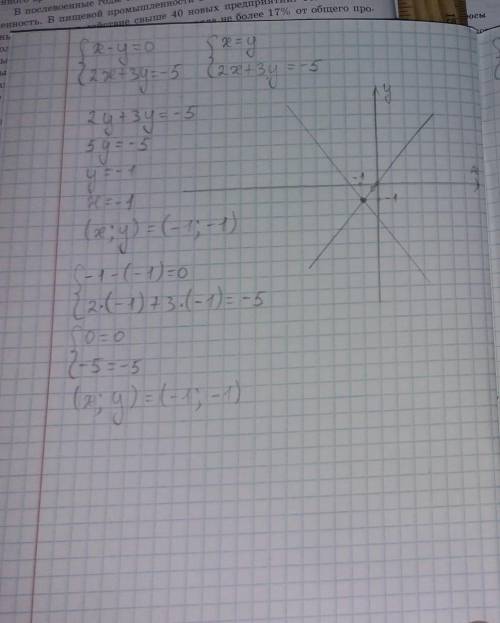 В послевоенные годы
ленность. В пищевой промышленности
свыше 40 новых предприятий.
не более 17% от общего про-
{x-y=0 {x=y
{2x+3y=-5 {2x+3y=-5
2y+3y=-5
5y=-5
y=-1
x=-1
(x;y)=(-1;-1)
{-1-(-1)=0
{2·(-1)+3·(-1)=-5
{0=0
{-5=-5
(x;y)=(-1;-1)
y
-1
-1